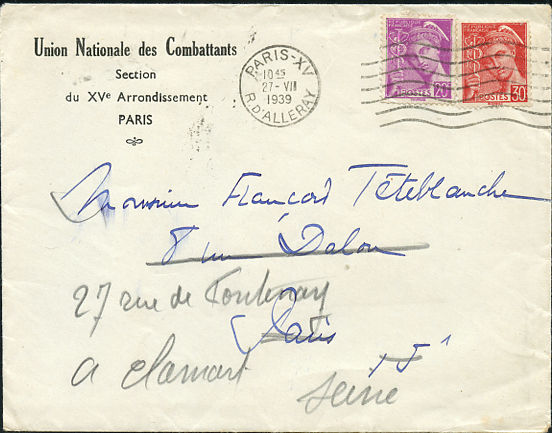 Union Nationale des Combattants
Section
du XVe Arrondissement
PARIS
PARIS-XV
10 45
27-VII
1939
R. D'ALLERAY
REPUBLIQUE FRANÇAISE
POSTES 20c
REPUBLIQUE FRANÇAISE
POSTES 30c
Monsieur François Têteblanche
8 rue Dalou
27 rue de Fontenay
Paris
à Clamart
Seine